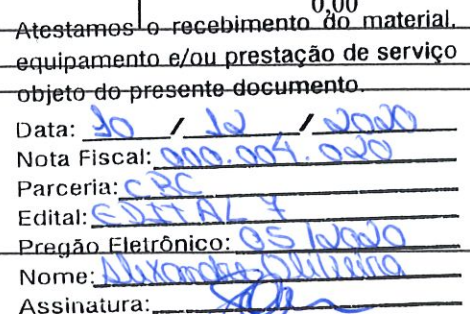 0,00
Atestamos o recebimento do material,
equipamento e/ou prestação de serviço
objeto do presente documento.
Data: 10 / 12 / 2020
Nota Fiscal: 000.004.020
Parceria: CBC
Edital: EDITAL 7
Pregão Eletrônico: 05/2020
Nome: Alexandre Oliveira
Assinatura: